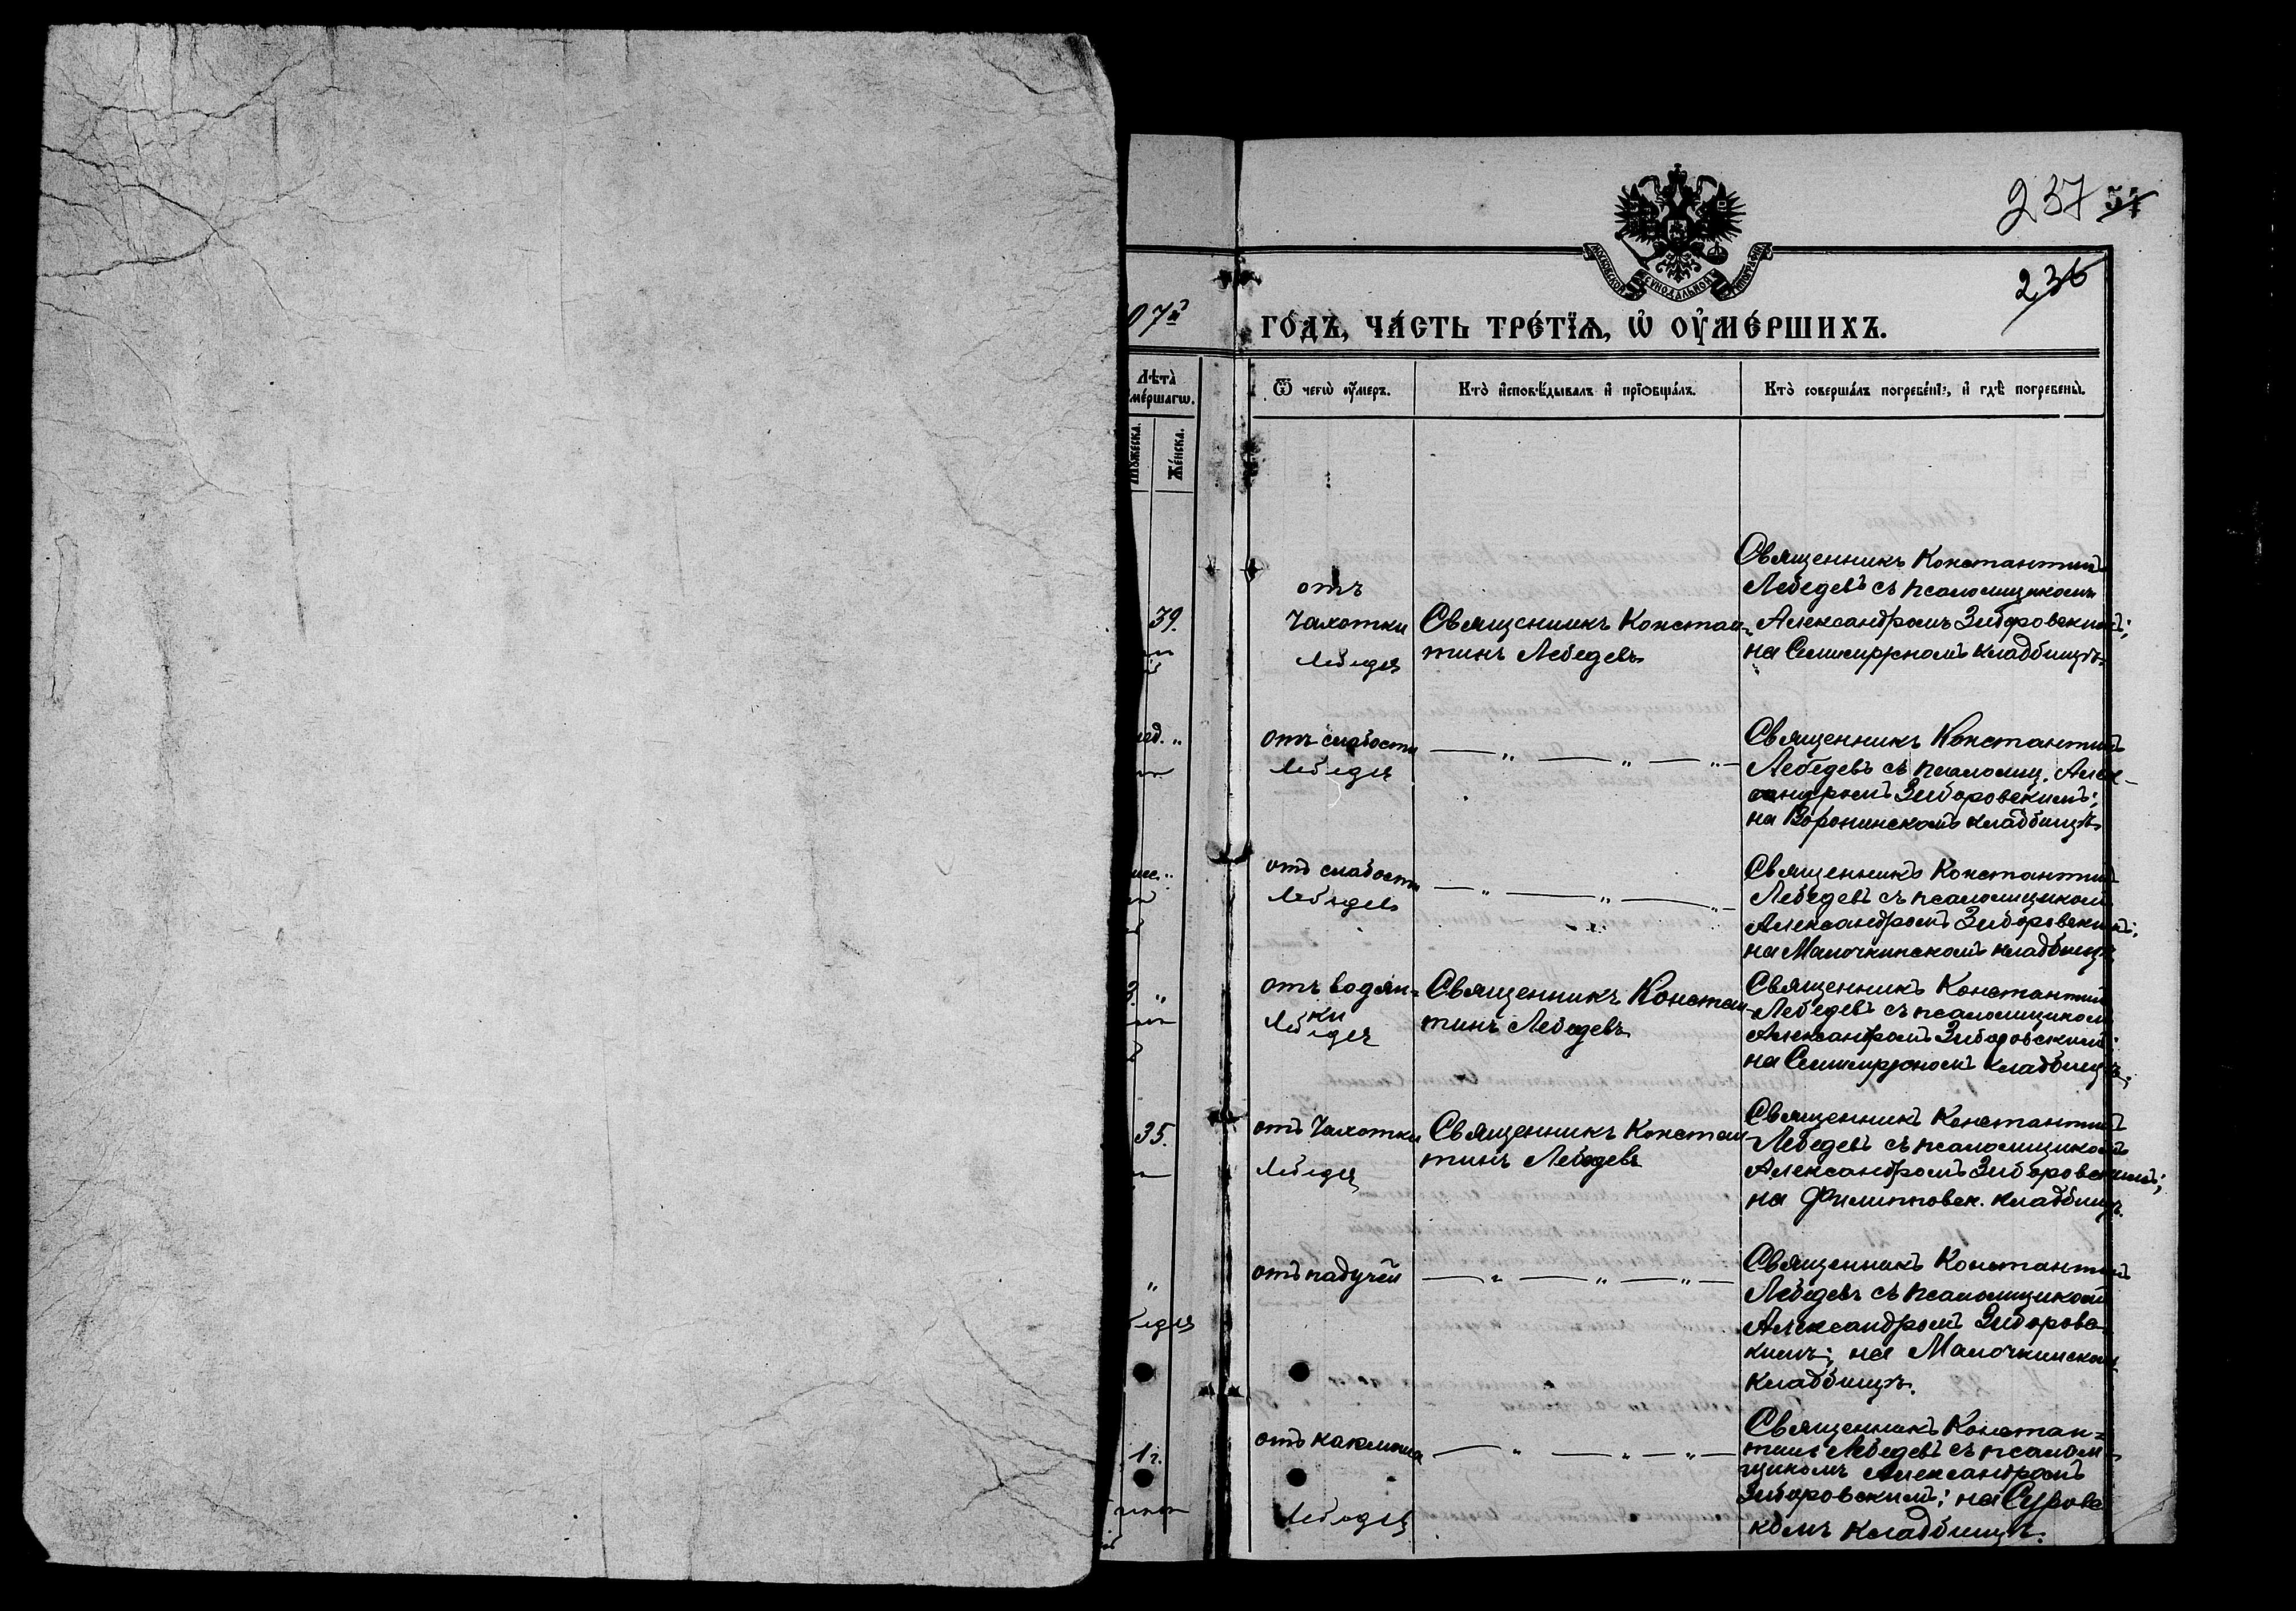 237 57
236
МОСКОВСКОЙ СѴНОДАЛЬНОЙ ТИПОГРАФІИ
07й
ГО́ДЪ, ЧА́СТЬ ТРЕ́ТЇѦ, Ѡ҆ ОУ҆МЕ́РШИХЪ.
Лѣта̀
ме́ршагѡ.
Мꙋ́жеска.
Же́нска.
Ѿ чегѡ̀ оу҆́меръ.
Кто̀ и҆сповѣ́дывалъ и҆ прїѡбща́лъ.
Кто̀ соверша́лъ погребе́нїе, и҆ гдѣ̀ погребены̀.
39.
отъ
Чахотки
Лебедев
Священникъ Констан-
тинъ Лебедевъ
Священникъ Константинъ
Лебедевъ съ псаломщикомъ
Александромъ Зиборовскимъ;
на Семигорскомъ кладбищѣ
нед. "
отъ слабости
Лебедев
— " — " — " —
Священникъ Константинъ
Лебедевъ съ псаломщ. Алек-
сандромъ Зиборовскимъ;
на Воронинскомъ кладбищѣ
мес. "
отъ слабости
Лебедев
— " — " — " —
Священникъ Константинъ
Лебедевъ съ псаломщикомъ
Александромъ Зиборовскимъ;
на Малочкинскомъ кладбищѣ
3. "
отъ водян-
ки
Лебедев
Священникъ Констан-
тинъ Лебедевъ
Священникъ Константинъ
Лебедевъ съ псаломщикомъ
Александромъ Зиборовскимъ;
на кладбищѣ;
35.
отъ Чахотки
Лебедев
Священникъ Констан-
тинъ Лебедевъ
Священникъ Константинъ
Лебедевъ съ псаломщикомъ
Александромъ Зиборовскимъ;
на Филипповск. кладбищѣ.
"
бедев
отъ падучей
— " — " — " —
Священникъ Константинъ
Лебедевъ съ псаломщикомъ
Александромъ Зиборовс-
кимъ; на Малочкинском
кладбищѣ.
1 г.
отъ коклюша
Лебедев
— " — " — " —
Священникъ Констан-
тинъ Лебедевъ съ псалом-
щикомъ Александромъ
Зиборовскимъ; на Суровс
комъ кладбищѣ.